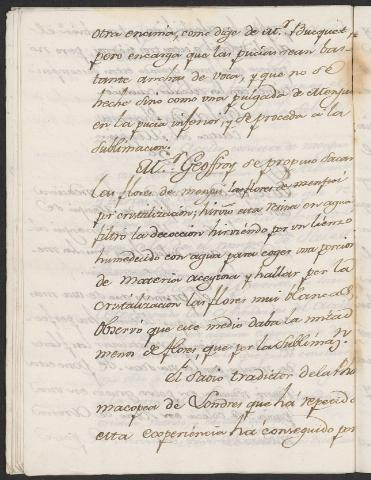 otra encima, como dige de M.r Bucquet
pero encarga que las pucias sean bas-
tante anchas de voca, y que no se
heche sino como una pulgada de Menjui
en la pucia inferior, y se proceda a la
sublimacion.
M.r Geoffroy se propuso sacar
las flores de menjui las flores de menjui
por cristalizacion; hirvio esta resina en agua
filtro la decoccion hirviendo por un lienzo
humedecido con agua para coger una porcion
de materia aceytosa y hallar por la
cristalizacion las flores mui blancas,
observó que este medio daba la mitad
menos de flores, que por la sublimaz.n
El sabio traductor de la Far
macopea de Londres que ha repetido
esta experiencia ha conseguido por